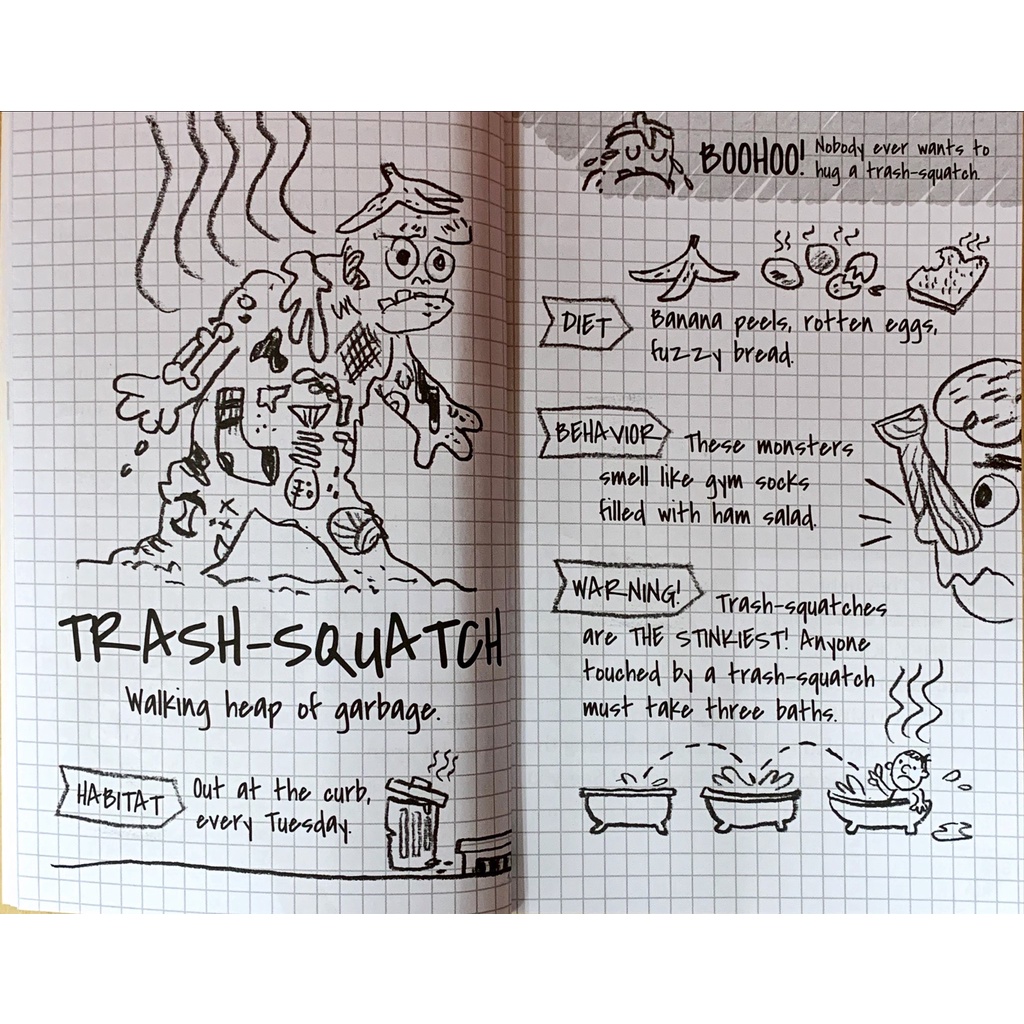 TRASH-SQUATCH
Walking heap of garbage.
HABITAT
Out at the curb,
every Tuesday.
BOOHOO!
Nobody ever wants to
hug a trash-squatch.
DIET
Banana peels, rotten eggs,
fuzzy bread.
BEHAVIOR
These monsters
smell like gym socks
filled with ham salad.
WARNING!
Trash-squatches
are THE STINKIEST! Anyone
touched by a trash-squatch
must take three baths.